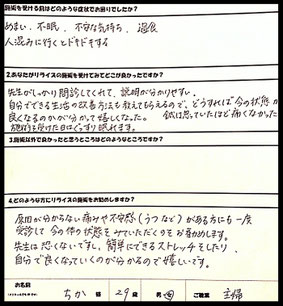 施術を受ける前はどのような症状でお困りでしたか?
めまい、不眠、不安な気持ち、過食
人混みに行くとドキドキする
2.あなたがリライズの施術を受けてみてどこが良かったですか?
先生がしっかり問診してくれて、説明が分かりやすい。
自分でできる生活の改善方法も教えてもらえるので、どうすれば今の状態が
良くなるのかが分かって嬉しくなった。 鍼は思っていたほど痛くなかった
施術を受けた日はぐっすり眠れます。
3.施術以外で良かったと思うところはどのようなところですか?
4.どのような方にリライズの施術をお勧めしますか?
原因が分からない痛みや不安感(うつなど)がある方にも一度
受診して今の体の状態をみていただくのをお勧めします。
先生は恐くないですし、簡単にできるストレッチをしたり、
自分で良くなっていくのが分かるので嬉しいです。
お名前 ちか 様 29歳 男・女 ご職業 主婦